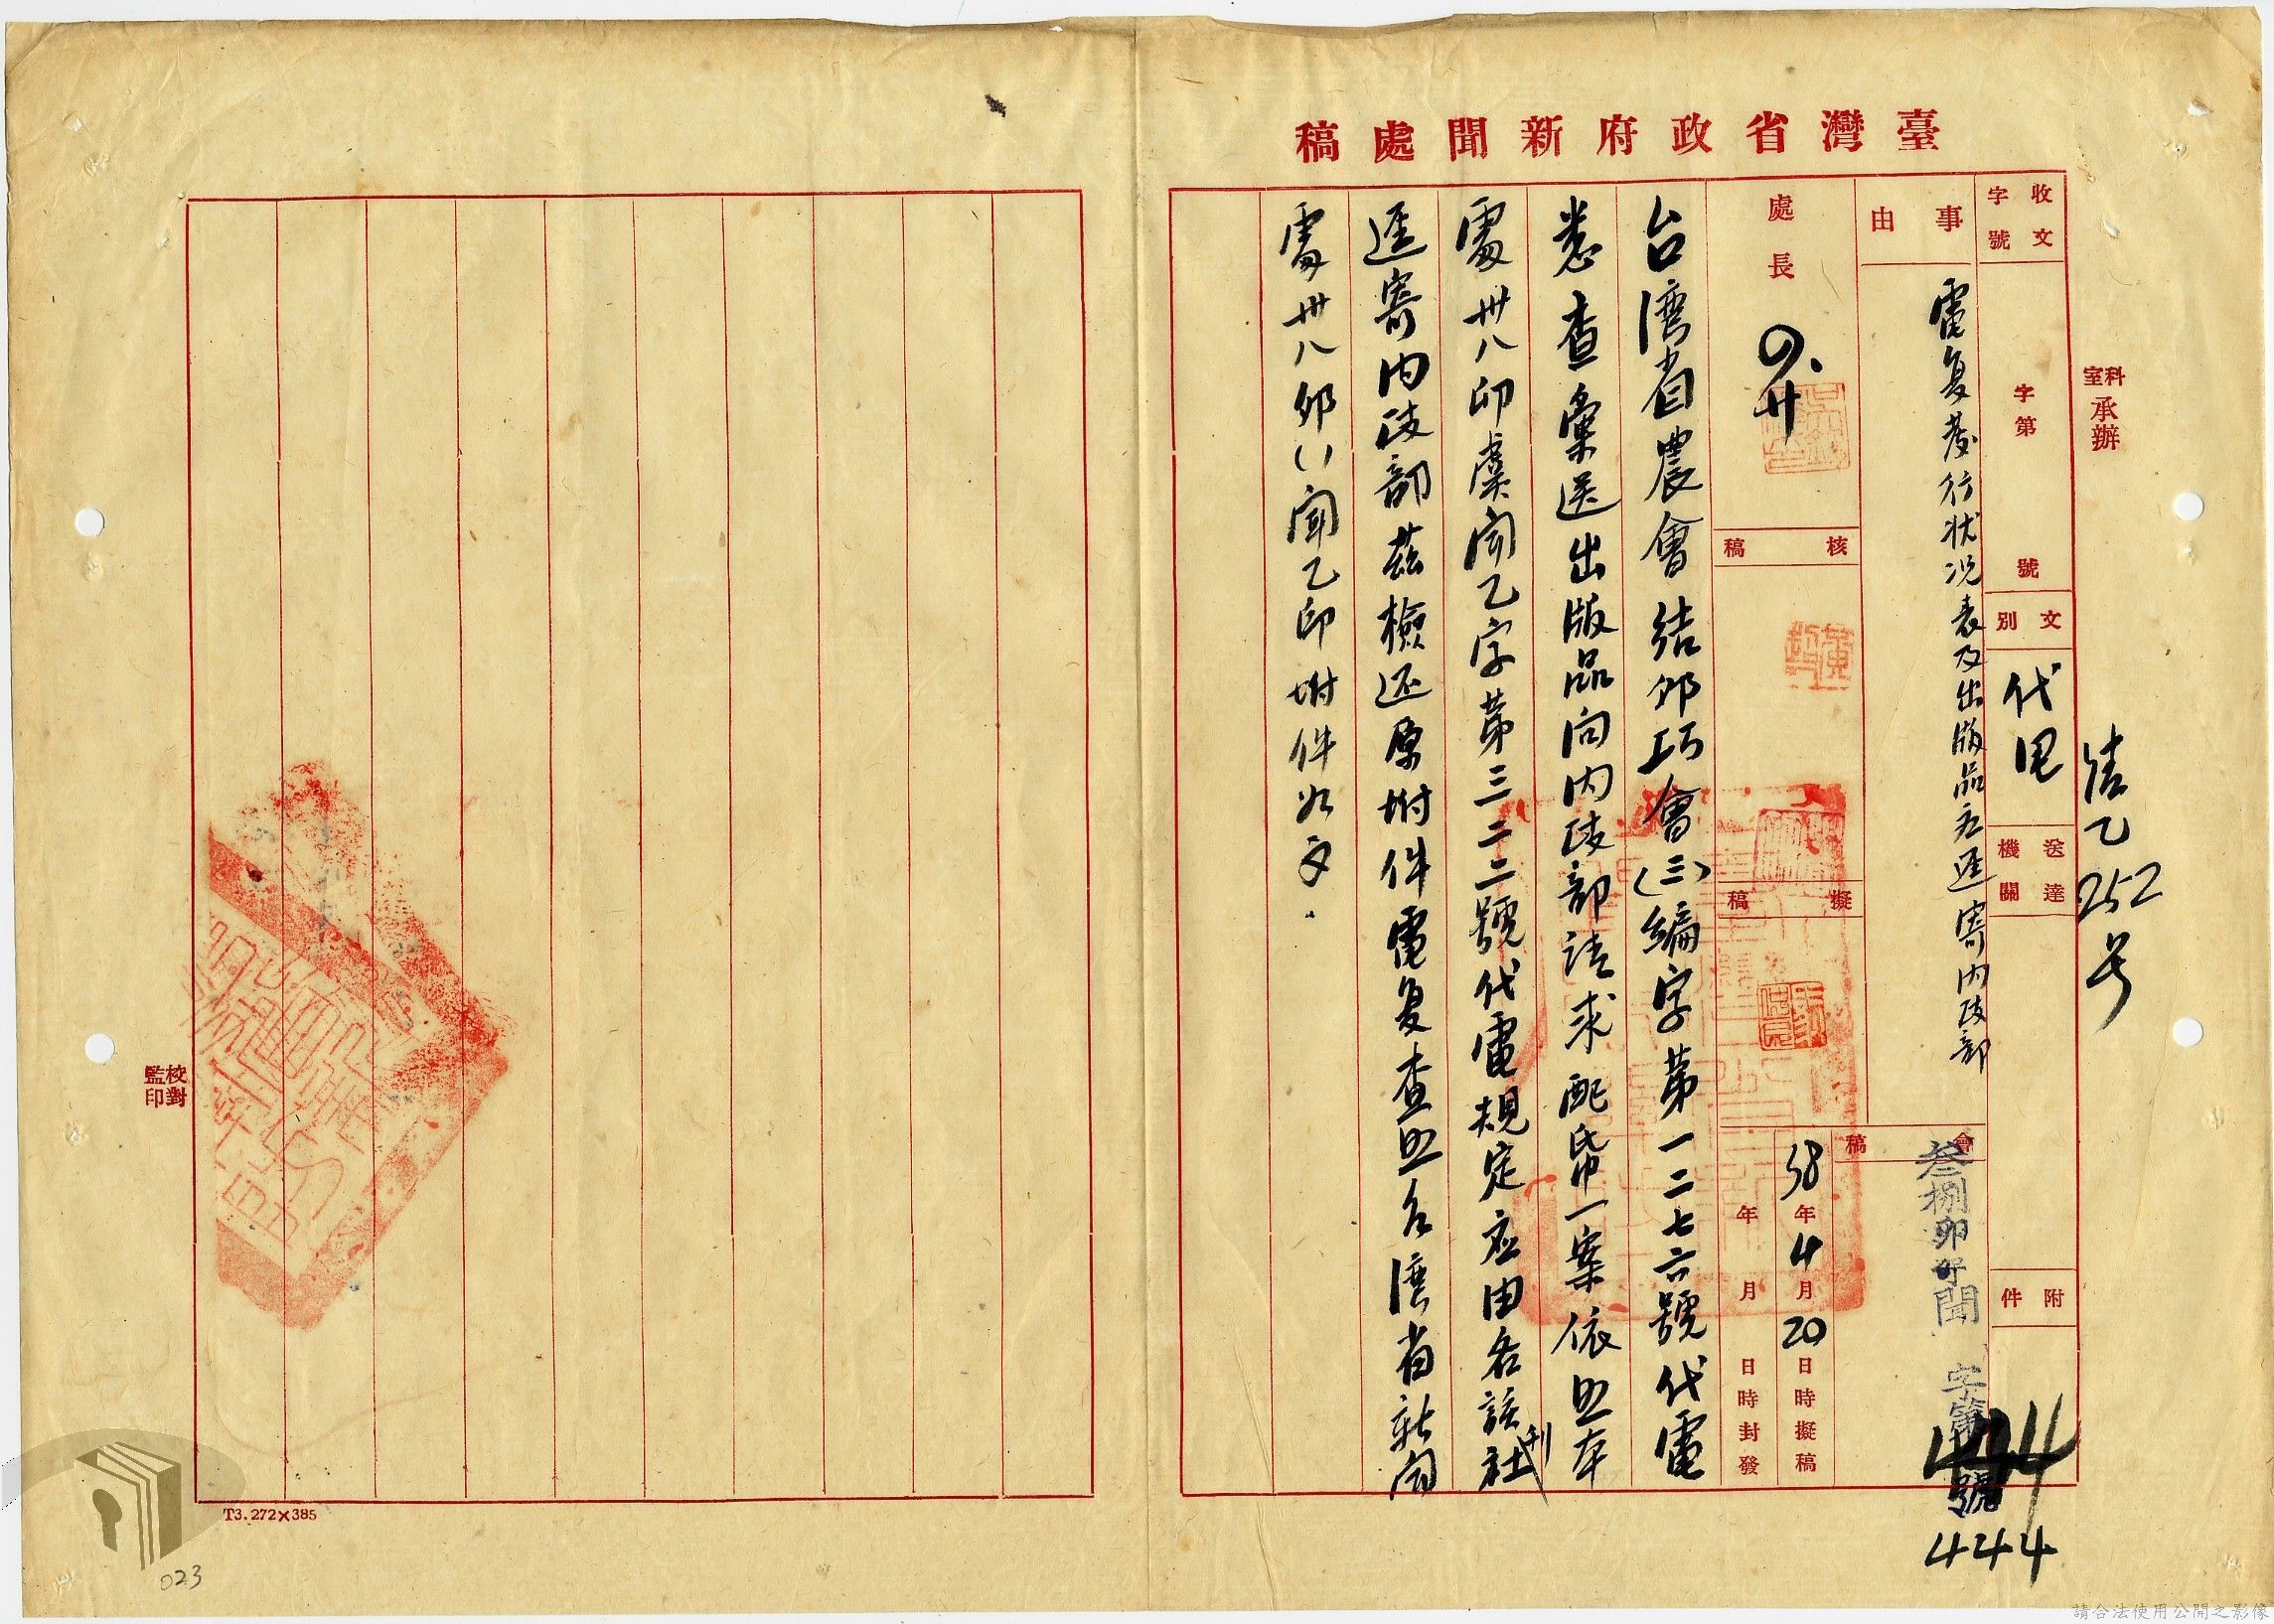 臺灣省政府新聞處稿
科室承辦
清乙252号
收文字號
字第 號
文別
代電
送達機關
附件
事由
電复發行状况表及出版品应逕寄内政部
會稿
叁捌卯 聞 字第 號
444
處長
核稿
擬稿
38年4月20日時擬稿
年 月 日時封發
台湾省農會 結卯巧會(三)編字第一二七六號代電
悉查彙送出版品向内政部請求配紙一案依照本
處卅八卯虞聞乙字第三二二號代電規定应由各該社刊
逕寄内政部茲檢还原坿件電复查照台湾省新聞
處卅八卯( )聞乙印坿件如文.
校對
監印
T3.272×385
023
請合法使用公開之影像